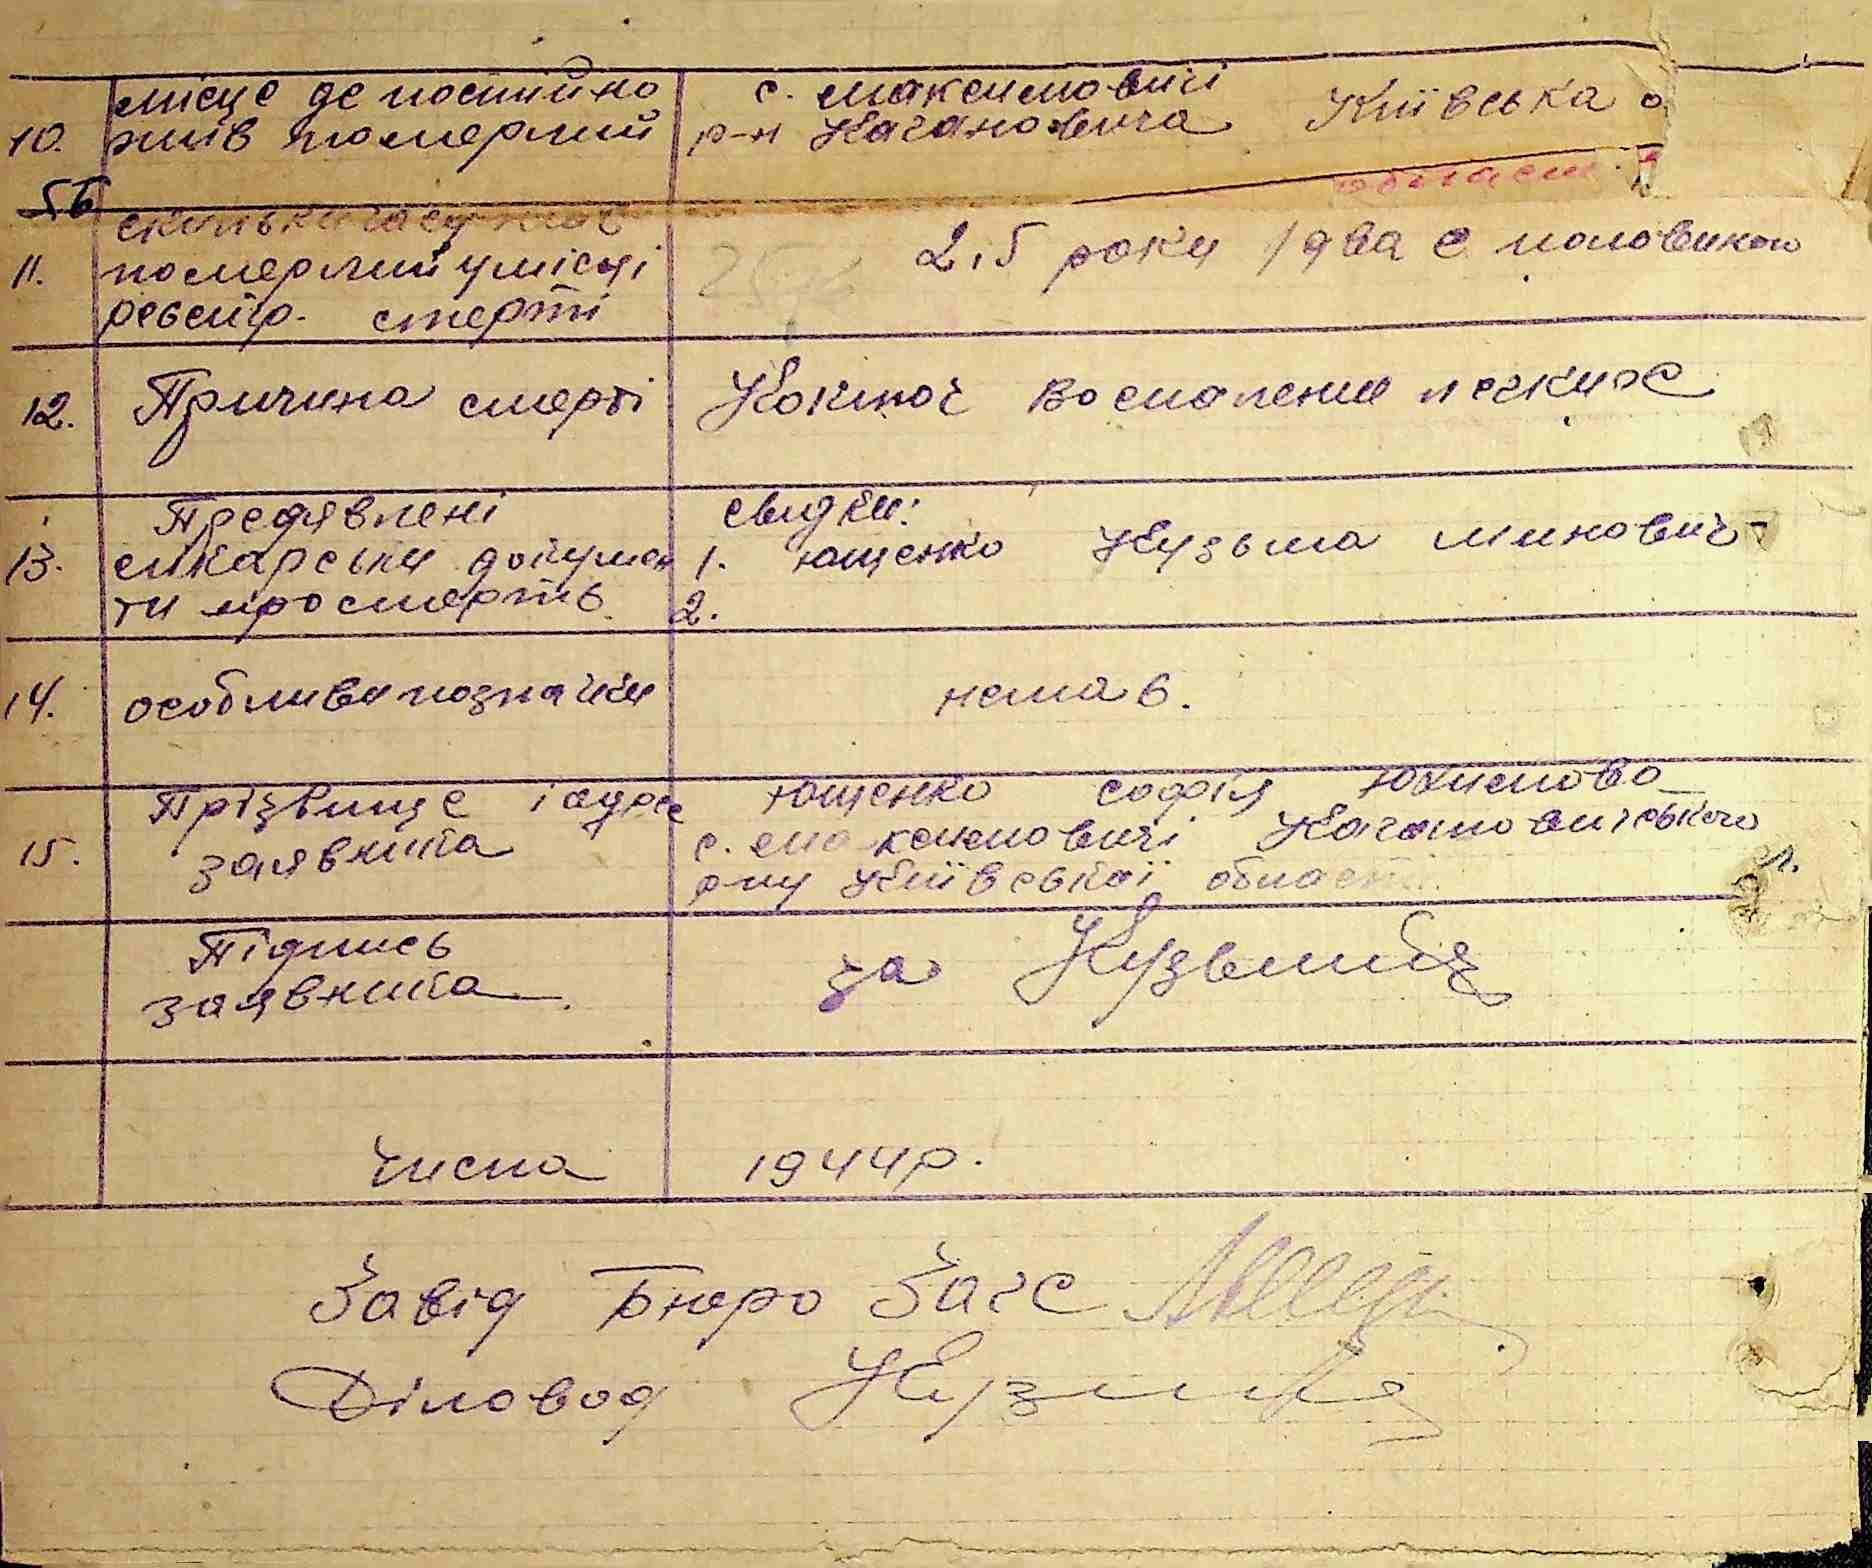 10. місце де постійно жив померлий
с. Максимовичі
р-н Кагановича Київська о
56
області
11. скильки часу жив
померлий у місці
реєстр. смерті
2,5 роки /два с половиною
12. Причина смерті
Коключ воспаление легкихе
13. Предявлені
ликарськи докумен
ти про смерть
свидки:
1. Ющенко Кузьма Минович
2.
14. особливи позначки
немає.
15. Прізвище і адрес
заявника
Ющенко Софія Юхимова
с. Максимовичі Кагановичського
р-ну Київської області.
Підпись
заявника
за
числа 1944 р.
Завід Бюро Загс
Діловод